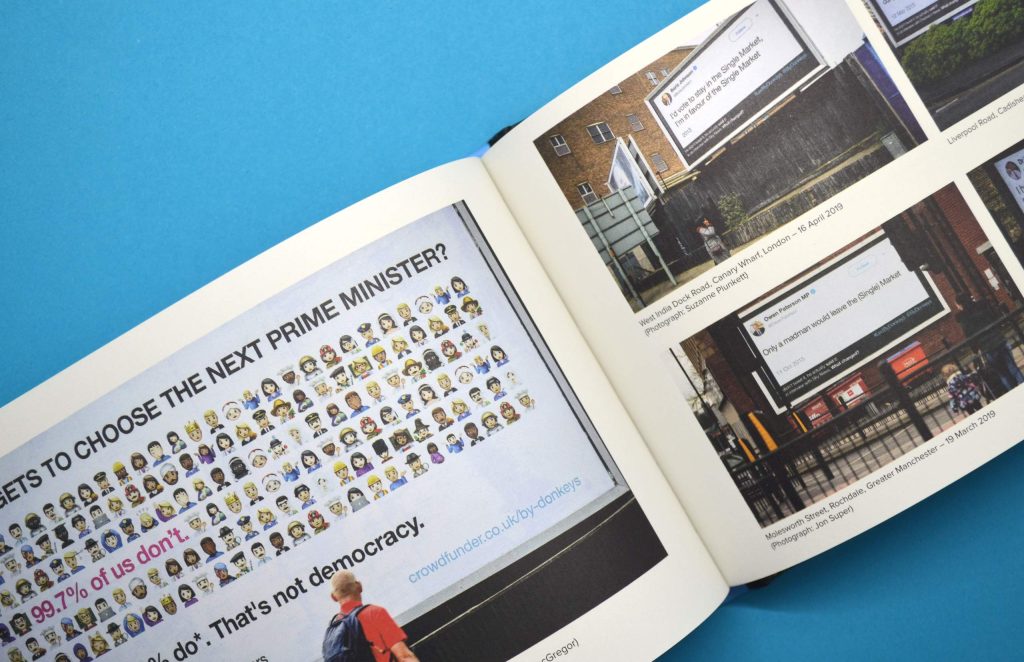 GETS TO CHOOSE THE NEXT PRIME MINISTER?
99.7% of us don't.
% do*. That's not democracy.
crowdfunder.co.uk/by-donkeys
Boris Johnson
I'd vote to stay in the Single Market,
I'm in favour of the Single Market
2013
West India Dock Road, Canary Wharf, London – 16 April 2019
(Photograph: Suzanne Plunkett)
Liverpool Road, Cadishe
Owen Paterson MP
Only a madman would leave the (Single) Market
What changed?
Molesworth Street, Rochdale, Greater Manchester – 19 March 2019
(Photograph: Jon Super)